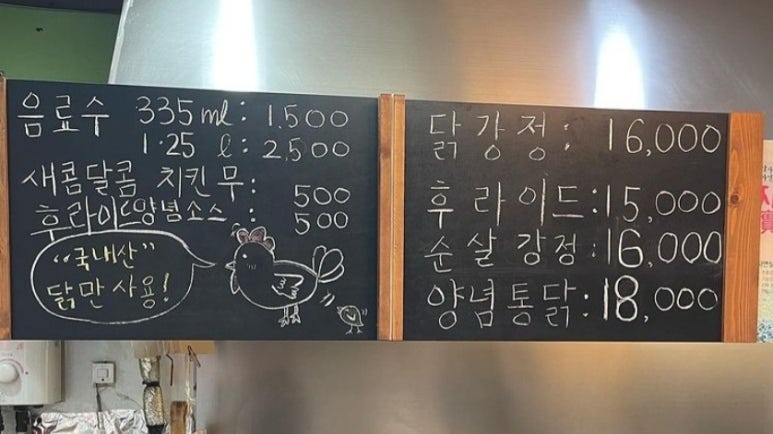 음료수 335ml: 1,500
1.25 l: 2,500
새콤달콤 치킨무: 500
후라이드양념소스: 500
"국내산"
닭만 사용!
닭강정: 16,000
후라이드: 15,000
순살강정: 16,000
양념통닭: 18,000